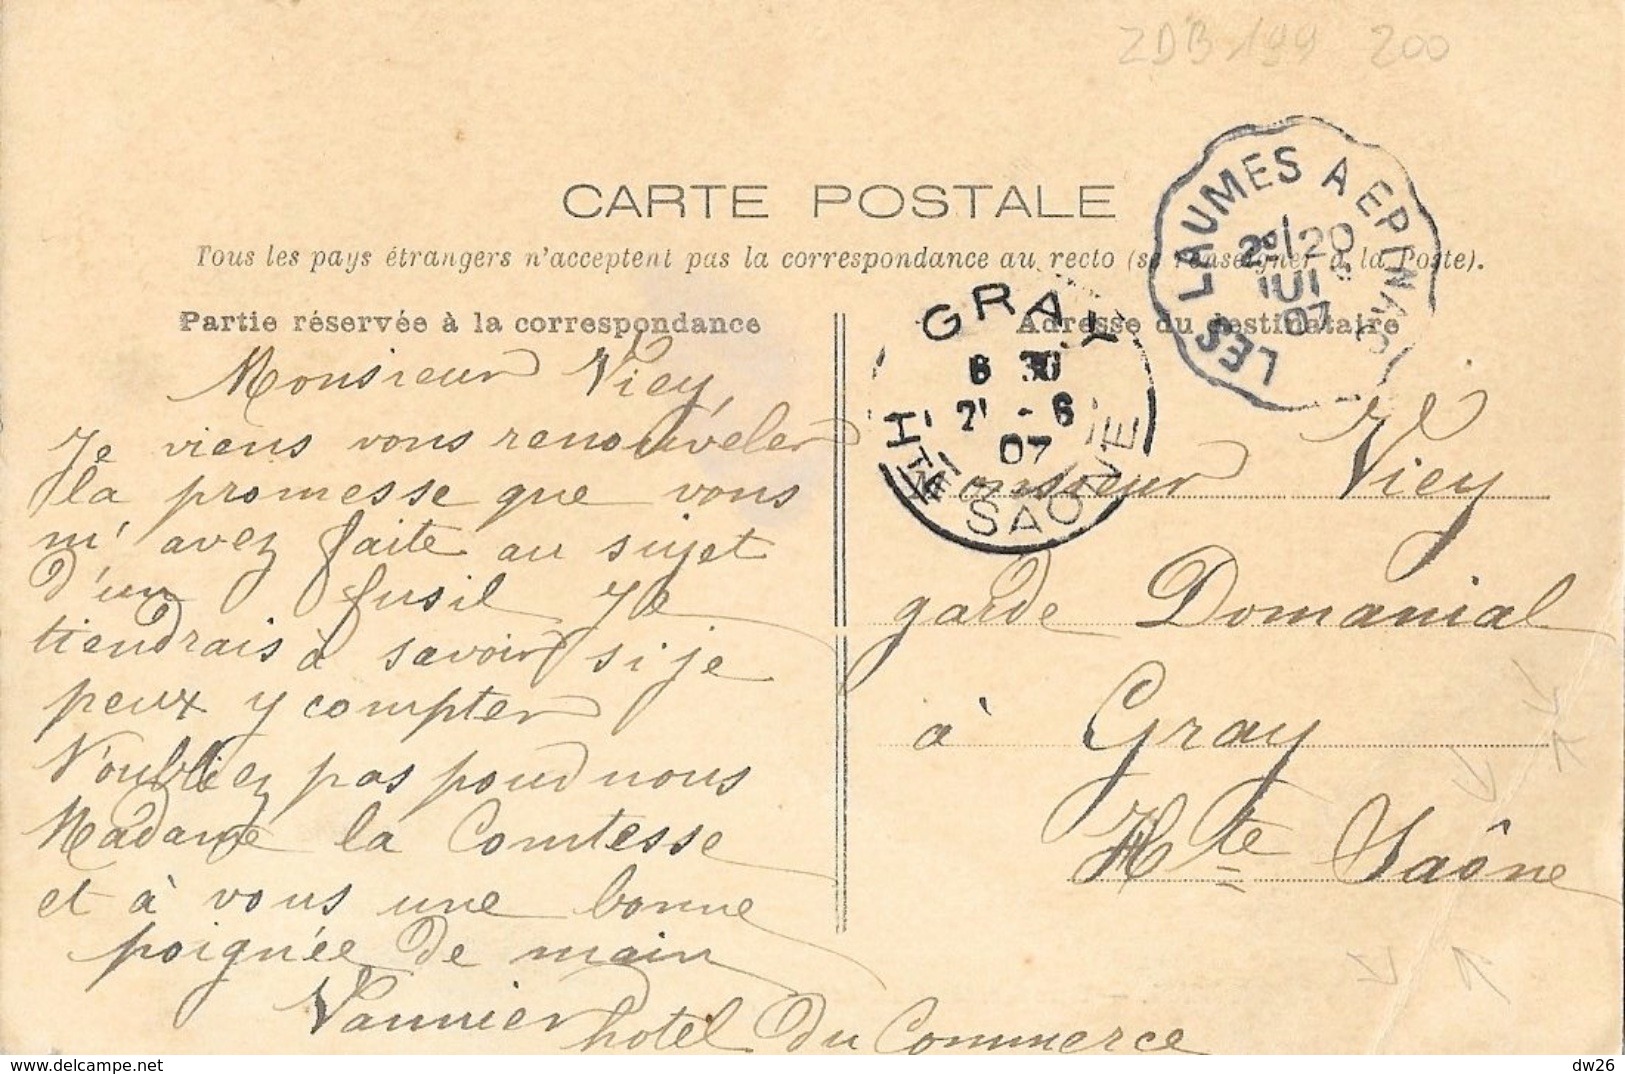 ZDB 199 200
CARTE POSTALE
Tous les pays étrangers n'acceptent pas la correspondance au recto (se renseigner à la Poste).
Partie réservée à la correspondance
Monsieur Viey,
Je viens vous renouveler
la promesse que vous
m'avez faite au sujet
d'un fusil Je
tiendrais à savoir si je
peux y compter
N'oubliez pas pour nous
Madame la Comtesse
et à vous une bonne
poignée de main
Vannier hotel du Commerce
Adresse du destinataire
LES LAUMES A EPINAC
2º/20
JUIN
07
GRAY
6 30
21 - 6
07
HTE SAONE
Monsieur Viey
garde Domanial
à Gray
Hte Saône
delcampe.net
dw26